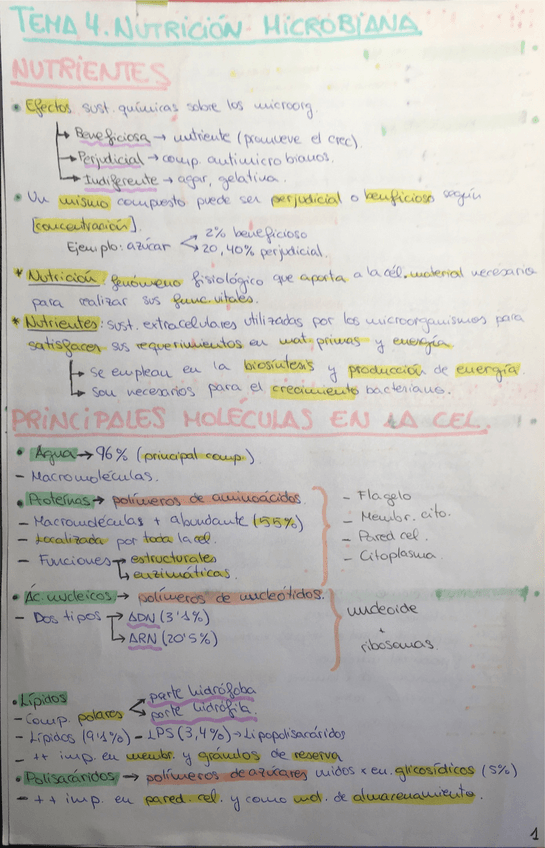 TEMA 4. NUTRICIÓN MICROBIANA
NUTRIENTES
• Efectos sust. químicas sobre los microorg.
↳ Beneficiosa → nutriente (promueve el crec).
↳ Perjudicial → comp antimicrobianos.
↳ Indiferente → agar, gelatina.
• Un mismo compuesto puede ser perjudicial o beneficioso según
[concentración].
Ejemplo: azúcar 2% beneficioso
20, 40% perjudicial.
* Nutrición: fenómeno fisiológico que aporta a la cél. material necesario
para realizar sus func. vitales.
* Nutrientes: sust. extracelulares utilizadas por los microorganismos para
satisfacer sus requerimientos en mat. primas y energía
↳ Se emplean en la biosíntesis y producción de energía.
↳ son necesarios para el crecimiento bacteriano.
PRINCIPALES MOLÉCULAS EN LA CEL.
• Agua → 96% (principal comp)
- Macromoléculas.
• Proteínas → polímeros de aminoácidos.
- Macromoléculas + abundante (55%)
- Localizada por toda la cel.
- Funciones → estructurales
↳ enzimáticas.
- Flagelo
- Membr. cito.
- Pared cel.
- Citoplasma.
• Ác. nucleicos → polímeros de nucleótidos.
- Dos tipos → ADN (3'1%)
↳ ARN (20'5%)
nucleoide
+
ribosomas.
• Lípidos
- Comp. polares parte hidrófoba
parte hidrófila.
- Lípidos (9'1%) - LPS (3,4%) → Lipopolisacáridos
- ++ imp. en membr. y gránulos de reserva
• Polisacáridos → polímeros de azúcares unidos x en. glicosídicos (5%)
- ++ imp. en pared. cel. y como mol. de almacenamiento.
1